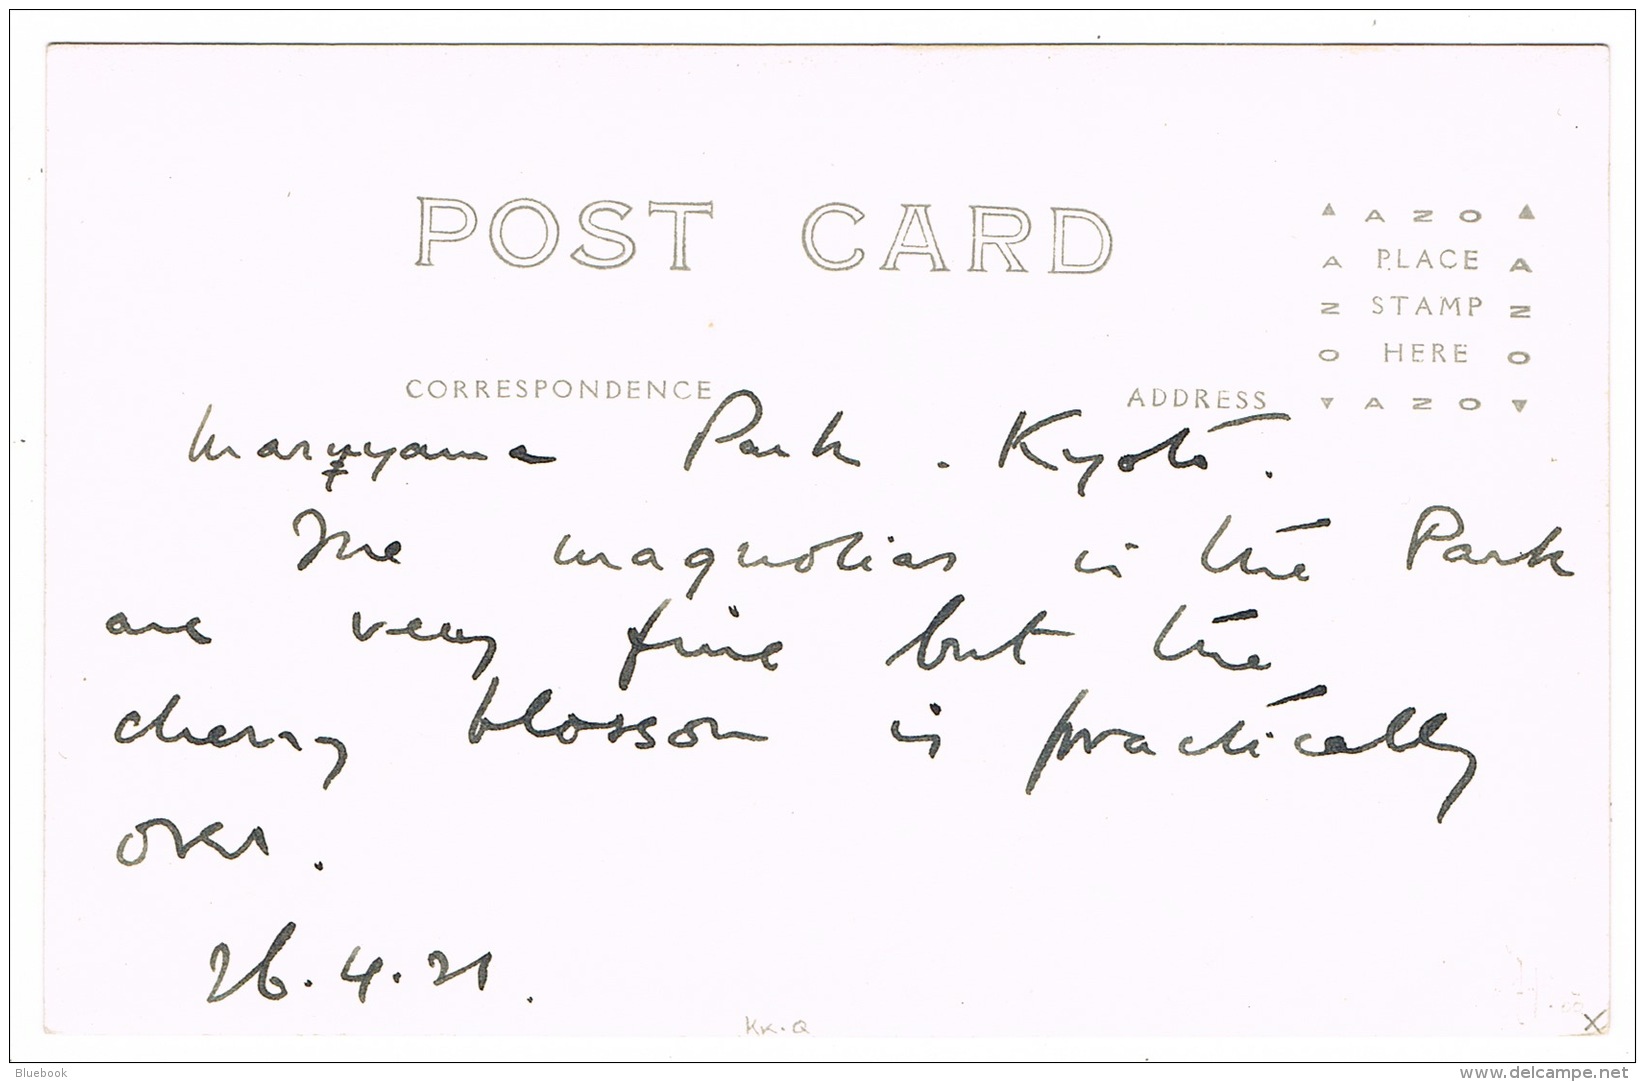 POST CARD
▲ A Z O ▲
A PLACE A
Z STAMP Z
O HERE O
▼ A Z O ▼
CORRESPONDENCE ADDRESS
Maruyama Park. Kyoto.
The magnolias in the Park
are very fine but the
cherry blossom is practically
over.
26.4.31.
KK.Q
X
Bluebook
www.delcampe.net